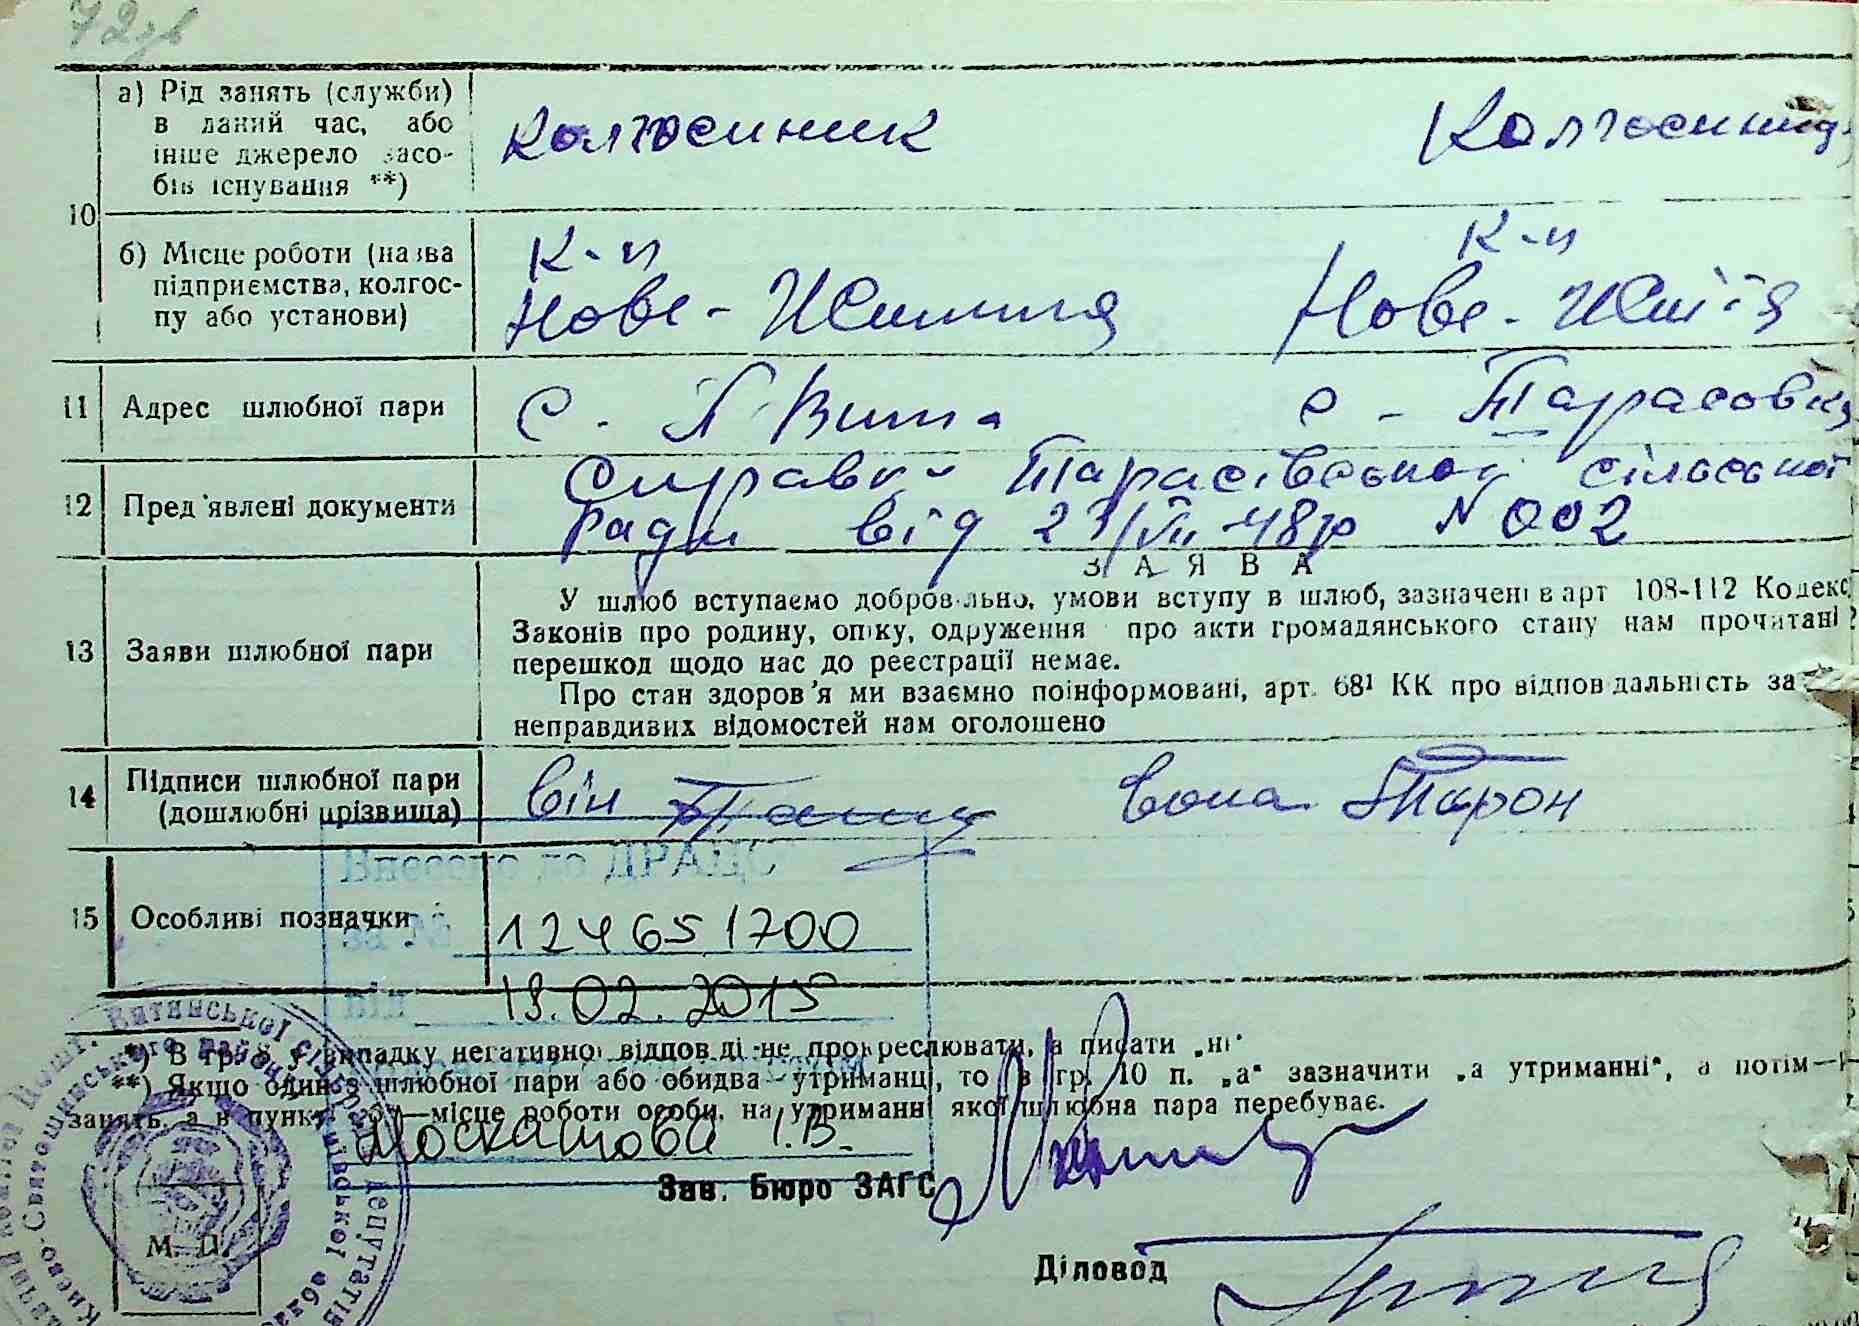 72зв
а) Рід занять (служби) в даний час, або інше джерело засо-
бів існування **)
Колгоспник Колгоспниця
10
б) Місце роботи (назва
підприємства, колгос-
пу або установи)
к-п к-п
Нове-Життя Нове-Життя
11 Адрес шлюбної пари с. П Вита с - Тарасовка
12 Пред'явлені документи Справки Тарасівської сільської
ради від 23/VII-48р N 002
ЗАЯВА
13 Заяви шлюбної пари
У шлюб вступаємо добровільно, умови вступу в шлюб, зазначені в арт 108-112 Кодекс
Законів про родину, опіку, одруження про акти громадянського стану нам прочитані
перешкод щодо нас до реєстрації немає.
Про стан здоров'я ми взаємно поінформовані, арт. 68¹ КК про відповідальність за
неправдивих відомостей нам оголошено
14 Підписи шлюбної пари
(дошлюбні прізвища)
Він Вона Тарон
Внесено до ДРАЦС
15 Особливі позначки
за № 124651700
від 19.02.2015
*) В гр. 8 у випадку негативної відповіді не прокреслювати, а писати „ні"
**) Якщо один з шлюбної пари або обидва утриманці, то в гр. 10 п. „а" зазначити „а утриманні", а потім—
занять, а в пункті „б"—місце роботи особи, на утриманні якої шлюбна пара перебуває.
Москатова І.В.
Зав. Бюро ЗАГС
М. П.
Діловод